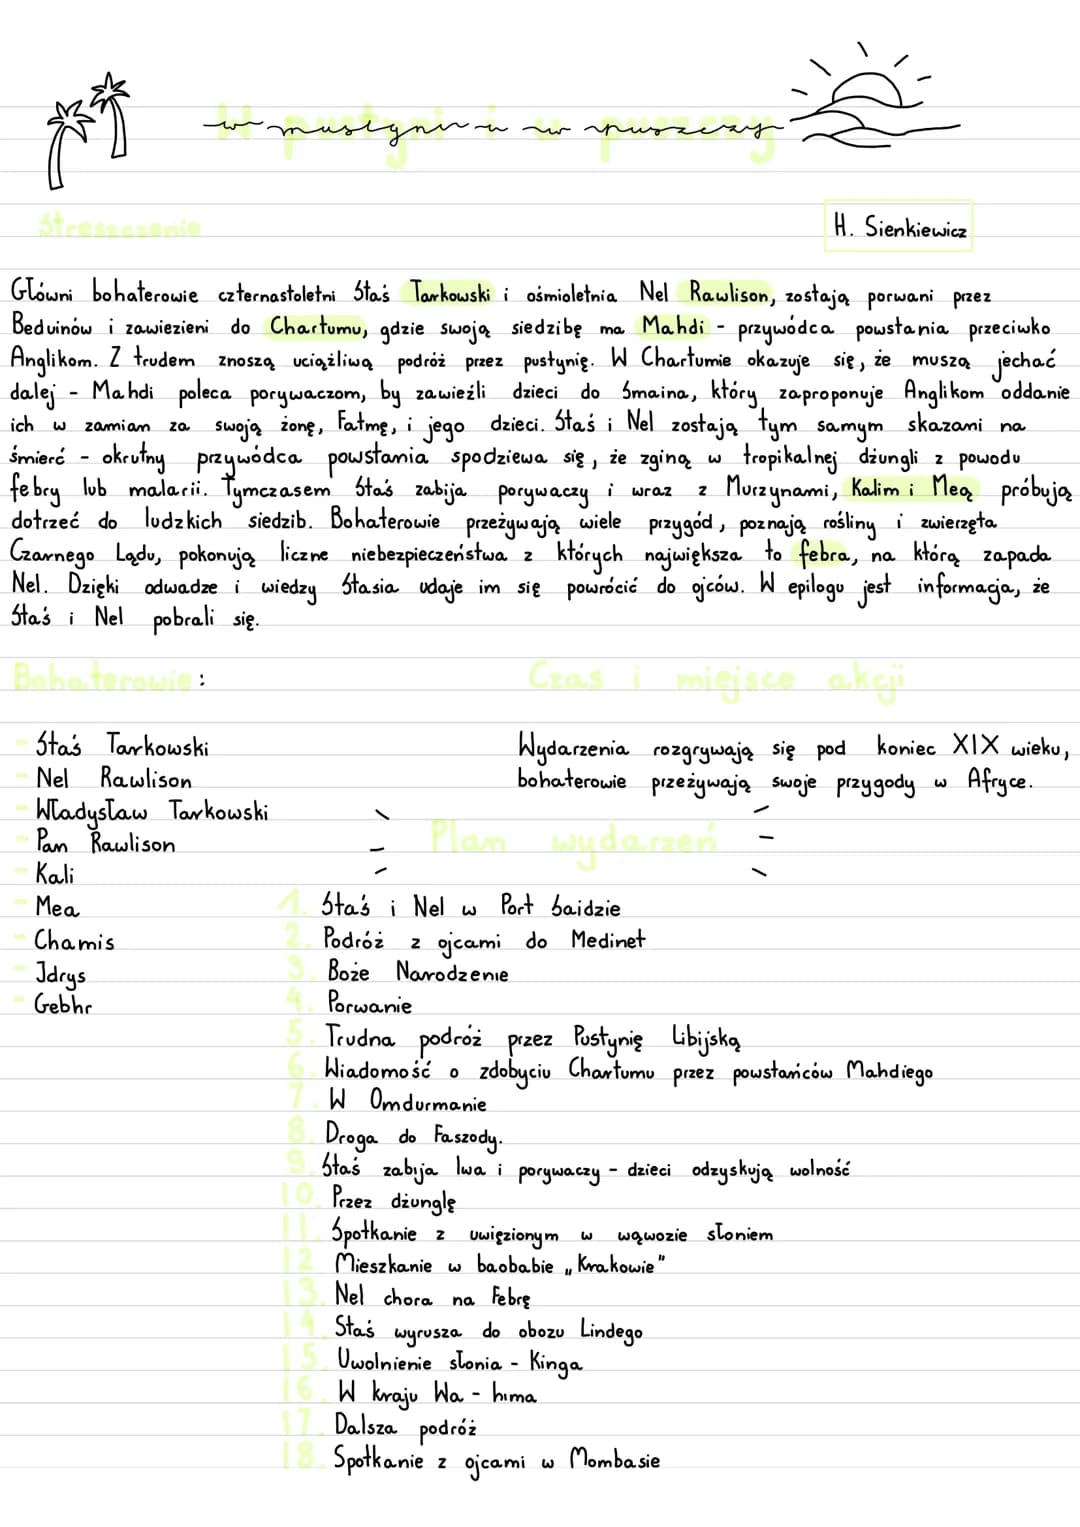 W pustyni i w puszczy
Streszczenie
H. Sienkiewicz
Główni bohaterowie czternastoletni Staś Tarkowski i ośmioletnia Nel Rawlison, zostają porwani przez
Beduinów i zawiezieni do Chartumu, gdzie swoją siedzibę ma Mahdi - przywódca powstania przeciwko
Anglikom. Z trudem znoszą uciążliwą podróż przez pustynię. W Chartumie okazuje się, że muszą jechać
dalej - Mahdi poleca porywaczom, by zawieźli dzieci do Smaina, który zaproponuje Anglikom oddanie
ich w zamian za swoją żonę, Fatmę, i jego dzieci. Staś i Nel zostają tym samym skazani na
śmierć - okrutny przywódca powstania spodziewa się, że zginą w tropikalnej dżungli z powodu
febry lub malarii. Tymczasem Staś zabija porywaczy i wraz z Murzynami, Kalim i Meą próbują
dotrzeć do ludzkich siedzib. Bohaterowie przeżywają wiele przygód, poznają rośliny i zwierzęta
Czarnego Lądu, pokonują liczne niebezpieczeństwa z których największa to febra, na którą zapada
Nel. Dzięki odwadze i wiedzy Stasia udaje im się powrócić do ojców. W epilogu jest informacja, że
Staś i Nel pobrali się.
Bohaterowie:
- Staś Tarkowski
- Nel Rawlison
- Władysław Tarkowski
- Pan Rawlison
- Kali
- Mea
- Chamis
- Idrys
- Gebhr
Czas i miejsce akcji
Wydarzenia rozgrywają się pod koniec XIX wieku,
bohaterowie przeżywają swoje przygody w Afryce.
Plan wydarzeń
1. Staś i Nel w Port Saidzie
2. Podróż z ojcami do Medinet
3. Boże Narodzenie
4. Porwanie
5. Trudna podróż przez Pustynię Libijską
6. Wiadomość o zdobyciu Chartumu przez powstańców Mahdiego
7. W Omdurmanie
8. Droga do Faszody.
9. Staś zabija lwa i porywaczy - dzieci odzyskują wolność
10. Przez dżunglę
11. Spotkanie z uwięzionym w wąwozie słoniem
12 Mieszkanie w baobabie „Krakowie"
13. Nel chora na Febrę
14. Staś wyrusza do obozu Lindego
15. Uwolnienie słonia - Kinga
16. W kraju Wa - hima
17. Dalsza podróż
18. Spotkanie z ojcami w Mombasie